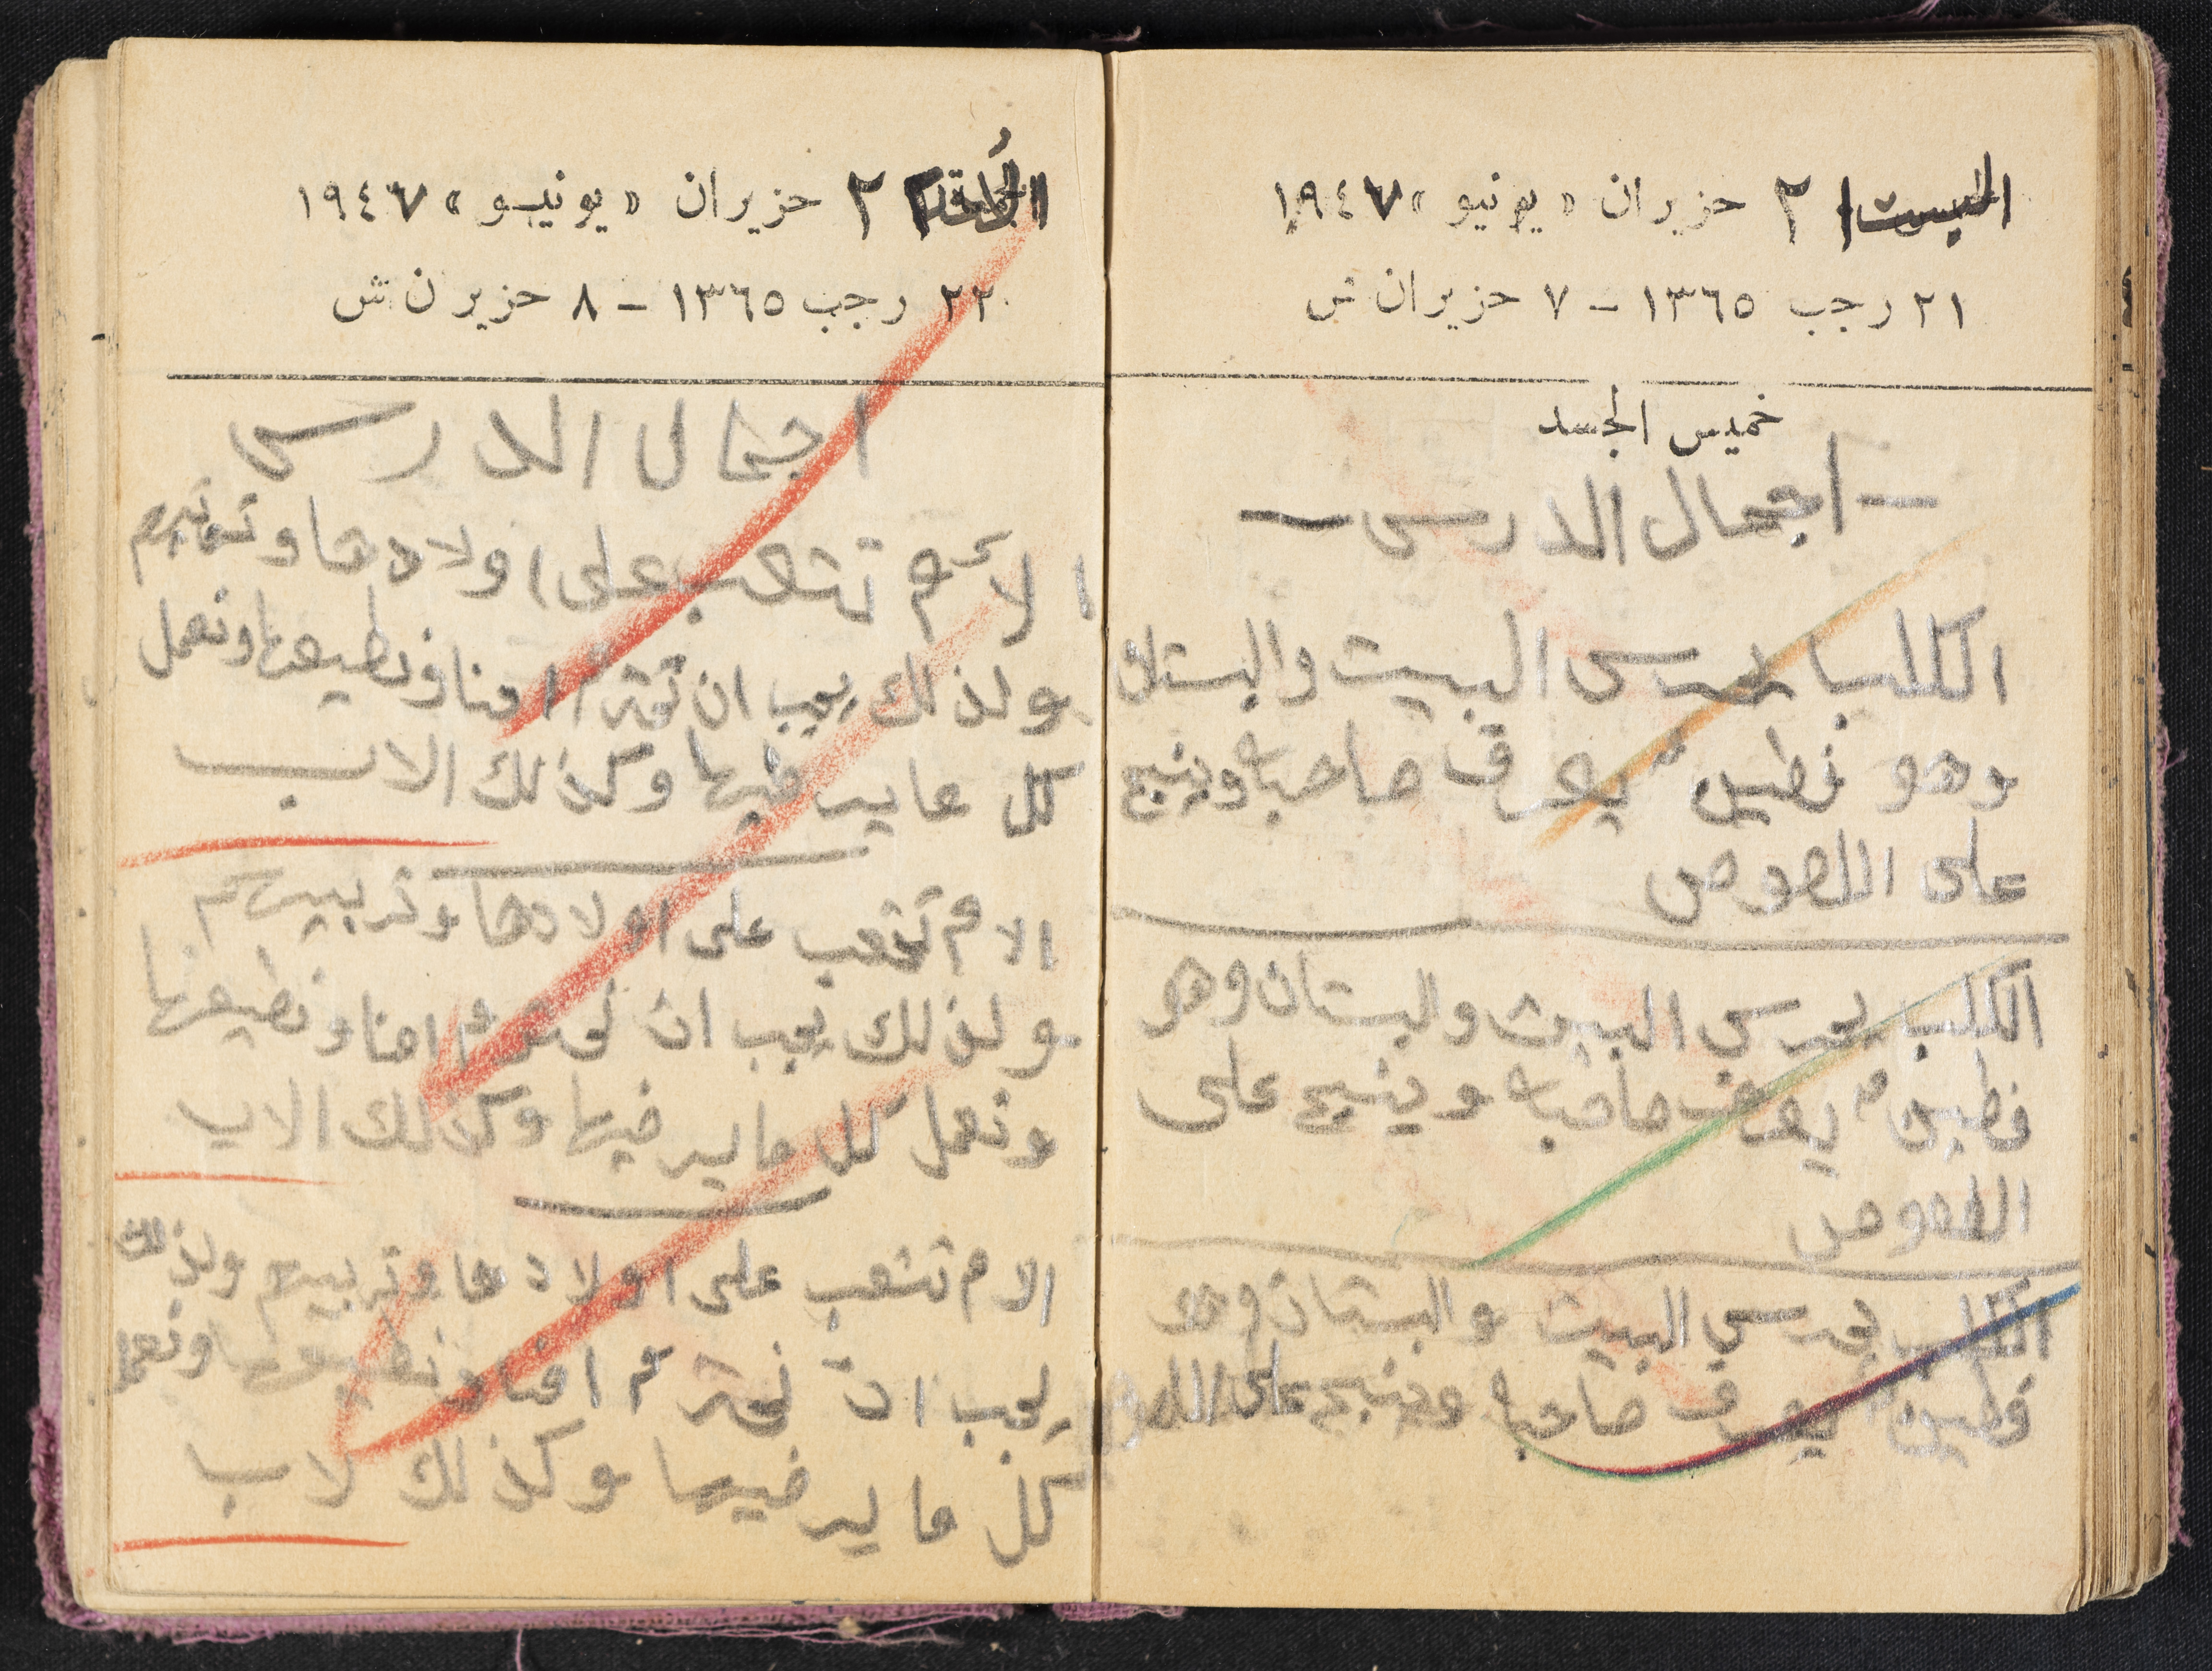 ٢١ حزيران « يونيو » ١٩٤٧
٢١ رجب ١٣٦٥ - ٧ حزيران ش
خميس الجسد
— اجمال الدرس —
الكلب يحرس البيت والبستان
وهو فطين يعرف صاحبه وينبح
على اللصوص
الكلب يحرس البيت والبستان وهو
فطين يعرف صاحبه وينبح على
اللصوص
الكلب يحرس البيت والبستان وهو
فطين يعرف صاحبه وينبح على اللصو
٢٢ حزيران « يونيو » ١٩٤٧
٢٢ رجب ١٣٦٥ - ٨ حزيرن ش
اجمال الدرس
الأم تتعب على اولادها
ولذلك يجب ان امنا ونطيعها ونعمل
كل فيها وكذلك الاب
الام تتعب على اولادها وتربيهم
ولذلك يجب ان نحترم امنا ونطيعها
ونعمل كل ما يرضيها وكذلك الاب
الام تتعب على اولادها وتربيهم ولذلك
يجب ان نحترم امنا ونطيعها ونعمل
كل ما يرضيها وكذلك لاب